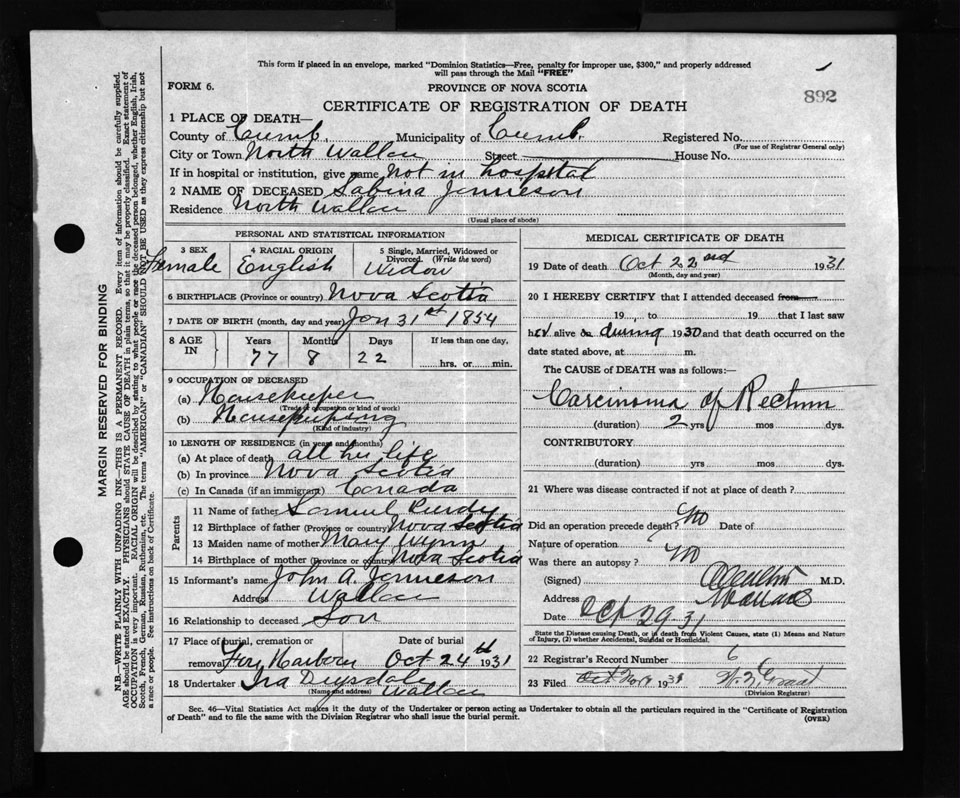 This form if placed in an envelope, marked "Dominion Statistics—Free, penalty for improper use, $300," and properly addressed
will pass through the Mail "FREE"
FORM 6.
PROVINCE OF NOVA SCOTIA
892
CERTIFICATE OF REGISTRATION OF DEATH
1 PLACE OF DEATH—
County of Cumb. Municipality of Cumb. Registered No.
(For use of Registrar General only)
City or Town North Wallace Street House No.
If in hospital or institution, give name Not in hospital
2 NAME OF DECEASED Sabina Jemieson
Residence North Wallace
(Usual place of abode)
PERSONAL AND STATISTICAL INFORMATION
3 SEX 4 RACIAL ORIGIN 5 Single, Married, Widowed or Divorced. (Write the word)
Female English Widow
6 BIRTHPLACE (Province or country) Nova Scotia
7 DATE OF BIRTH (month, day and year) Jan 31st 1854
8 AGE IN Years Months Days If less than one day,
77 8 22 hrs. or min.
9 OCCUPATION OF DECEASED
(a) Housekeeper
(Trade or occupation or kind of work)
(b) Housekeeping
(Kind of industry)
10 LENGTH OF RESIDENCE (in years and months)
(a) At place of death all his life
(b) In province Nova Scotia
(c) In Canada (if an immigrant) Canada
Parents
11 Name of father Samuel Purdy
12 Birthplace of father (Province or country) Nova Scotia
13 Maiden name of mother Mary Wynn
14 Birthplace of mother (Province or country) Nova Scotia
15 Informant's name John A. Jemieson
Address Wallace
16 Relationship to deceased Son
17 Place of burial, cremation or Date of burial
removal Fox Harbour Oct 24th 1931
18 Undertaker Ira Drysdale
(Name and address) Wallace
MEDICAL CERTIFICATE OF DEATH
19 Date of death Oct 22nd 1931
(Month, day and year)
20 I HEREBY CERTIFY that I attended deceased from
19 , to 19 that I last saw
her alive on during 1930 and that death occurred on the
date stated above, at m.
The CAUSE of DEATH was as follows:
Carcinoma of Rectum
(duration) 2 yrs mos dys.
CONTRIBUTORY
(duration) yrs mos dys.
21 Where was disease contracted if not at place of death?
Did an operation precede death? No Date of
Nature of operation
Was there an autopsy? No
(Signed) M.D.
Address Wallace
Date Oct 29-31
State the Disease causing Death, or in death from Violent Causes, state (1) Means and Nature
of Injury, (2) whether Accidental, Suicidal or Homicidal.
22 Registrar's Record Number 6
23 Filed Oct Nov 9 1931
(Division Registrar)
Sec. 46—Vital Statistics Act makes it the duty of the Undertaker or person acting as Undertaker to obtain all the particulars required in the "Certificate of Registration
of Death" and to file the same with the Division Registrar who shall issue the burial permit.
(OVER)
MARGIN RESERVED FOR BINDING
N.B.—WRITE PLAINLY WITH UNFADING INK—THIS IS A PERMANENT RECORD. Every item of information should be carefully supplied.
AGE should be stated EXACTLY. PHYSICIANS should STATE CAUSE OF DEATH in plain terms, so that it may be properly classified. Exact statement of
OCCUPATION is very important. RACIAL ORIGIN will be described by stating to what people or race the deceased person belonged, whether English, Irish,
Scotch, French, German, Russian, Ruthenian, etc. The terms "AMERICAN" or "CANADIAN" SHOULD NOT BE USED as they express citizenship but not
a race or people. See instructions on back of Certificate.